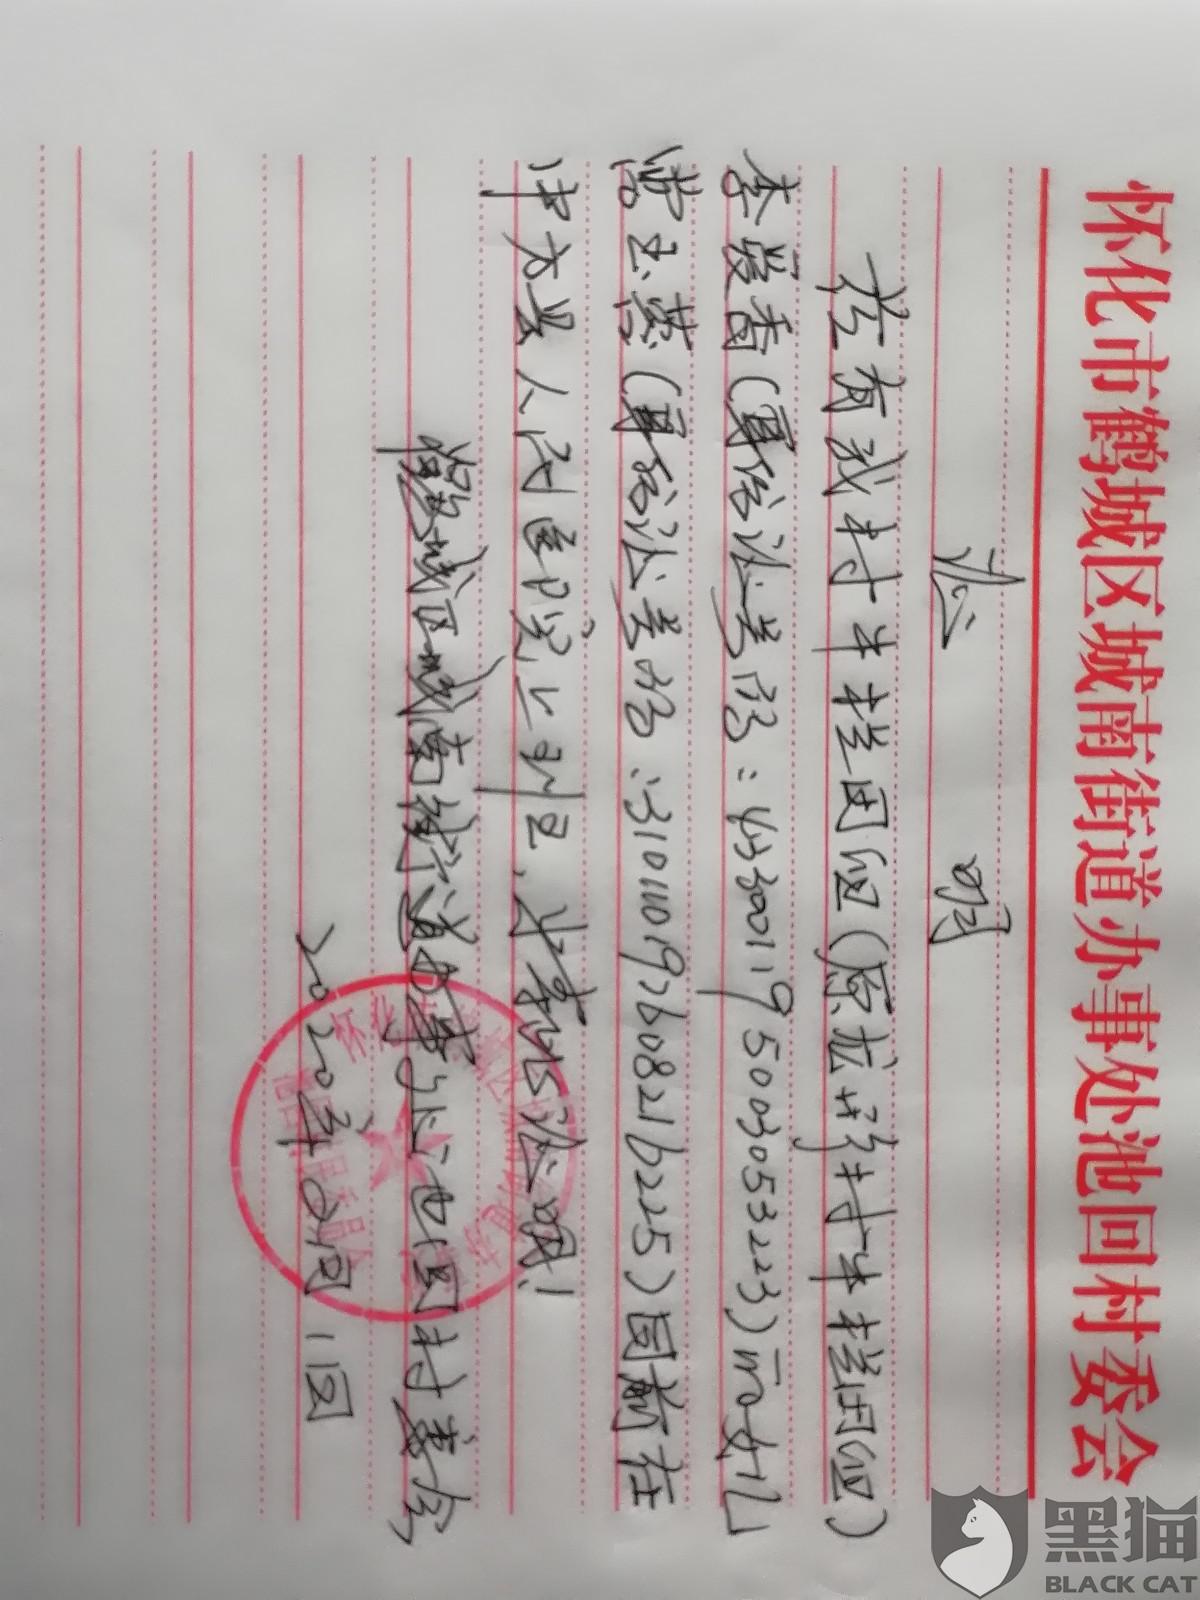 怀化市鹤城区城南街道办事处池回村委会
证明
兹有我村牛栏田组(原龙形村牛栏田组)
李爱香(身份证号码:433001195003053223)的女儿
谌玉燕(身份证号码:310110197608216225)目前在
中方县人民医院上班,特此证明!
鹤城区城南街道办事处池回村委会
2020年2月1日
黑猫
BLACK CAT